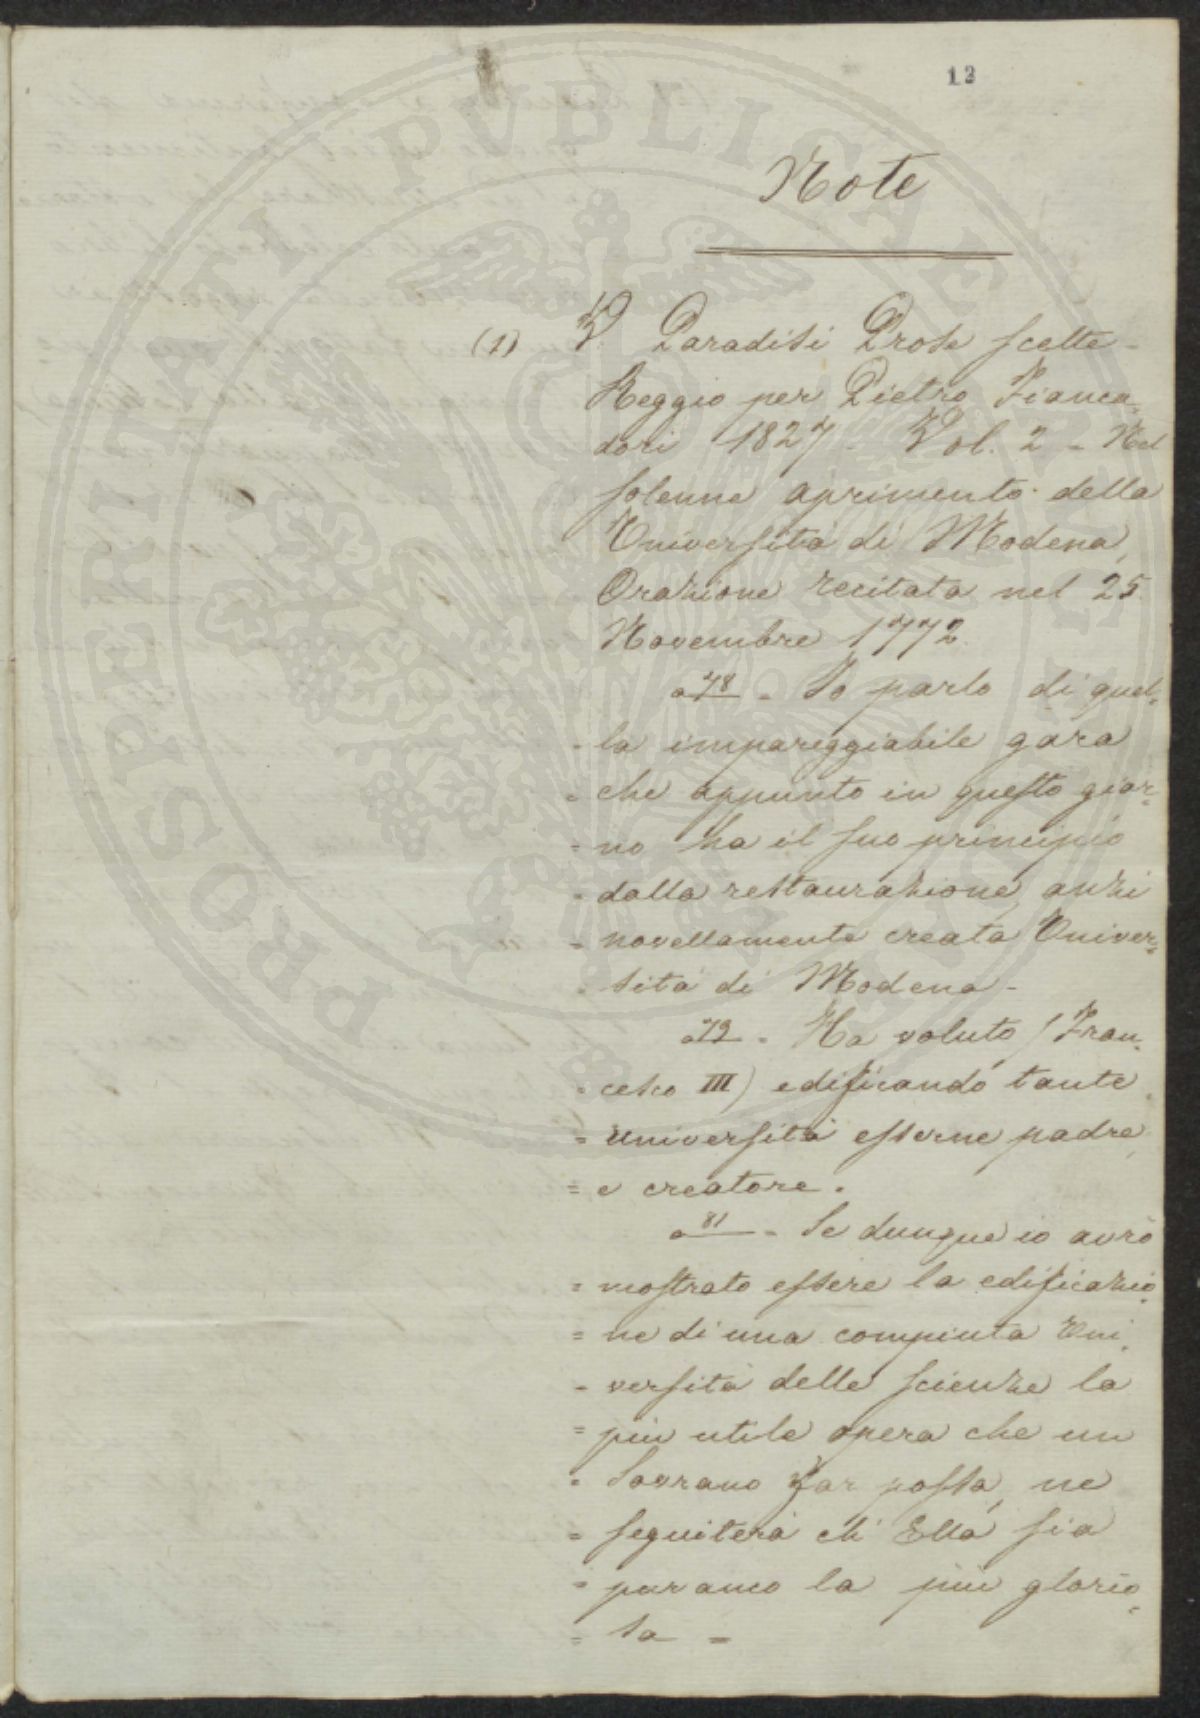 12
Note
(1) V. Paradisi Prose scelte -
Reggio per Pietro Fianca=
dori 1827 - Vol. 2 - Nel
solenne aprimento della
Università di Modena,
Orazione recitata nel 25
Novembre 1772.
a 78 = Io parlo di quel=
= la impareggiabile gara
= che appunto in questo gior=
= no ha il suo principio
= dalla restaurazione, anzi
= novellamente creata Univer=
= sità di Modena -
a 79 = Ha voluto (Fran=
= cesco III) edificando tante
= università esserne padre,
= e creatore =
a 81 = Se dunque io avrò
= mostrato essere la edificazio=
= ne di una compiuta Uni=
= versità delle scienze la
= più utile opera che un
= Sovrano far possa, ne
= seguiterà ch' Ella sia
= pur anco la più glorio=
= sa =
PROSPERITATI PVBLICAE